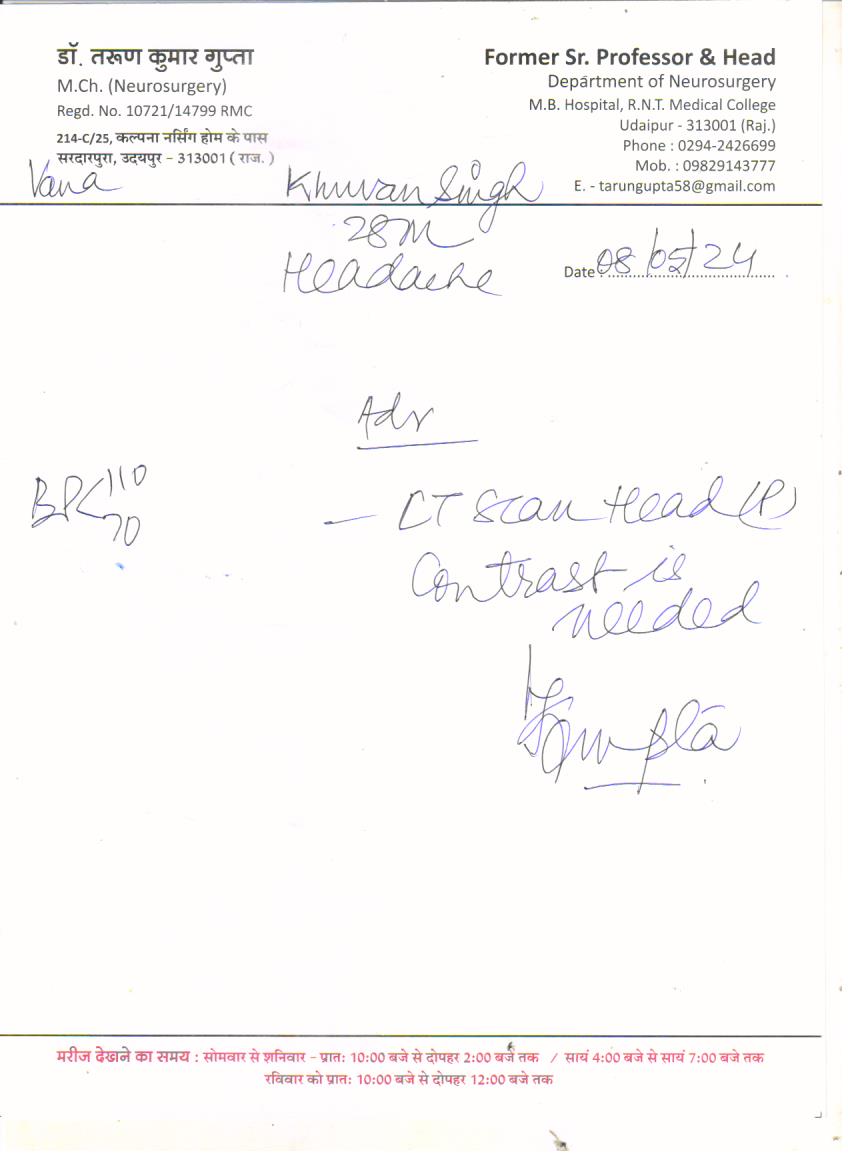 डॉ. तरूण कुमार गुप्ता
M.Ch. (Neurosurgery)
Regd. No. 10721/14799 RMC
214-C/25, कल्पना नर्सिंग होम के पास
सरदारपुरा, उदयपुर – 313001 ( राज. )
Former Sr. Professor & Head
Department of Neurosurgery
M.B. Hospital, R.N.T. Medical College
Udaipur - 313001 (Raj.)
Phone : 0294-2426699
Mob. : 09829143777
E. - tarungupta58@gmail.com
Vana
Khuvan Singh
28M
Headache
Date : 08/05/24
Adv
BP 110
70
– CT Scan Head (P)
Contrast is
needed
Gupta
मरीज देखाने का समय : सोमवार से शनिवार – प्रातः 10:00 बजे से दोपहर 2:00 बजे तक / सायं 4:00 बजे से सायं 7:00 बजे तक
रविवार को प्रातः 10:00 बजे से दोपहर 12:00 बजे तक